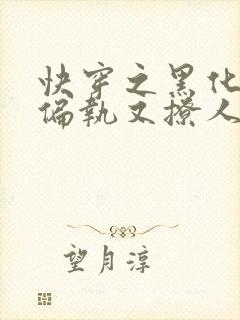 快穿之黑化
偏執又撩人
望月淳